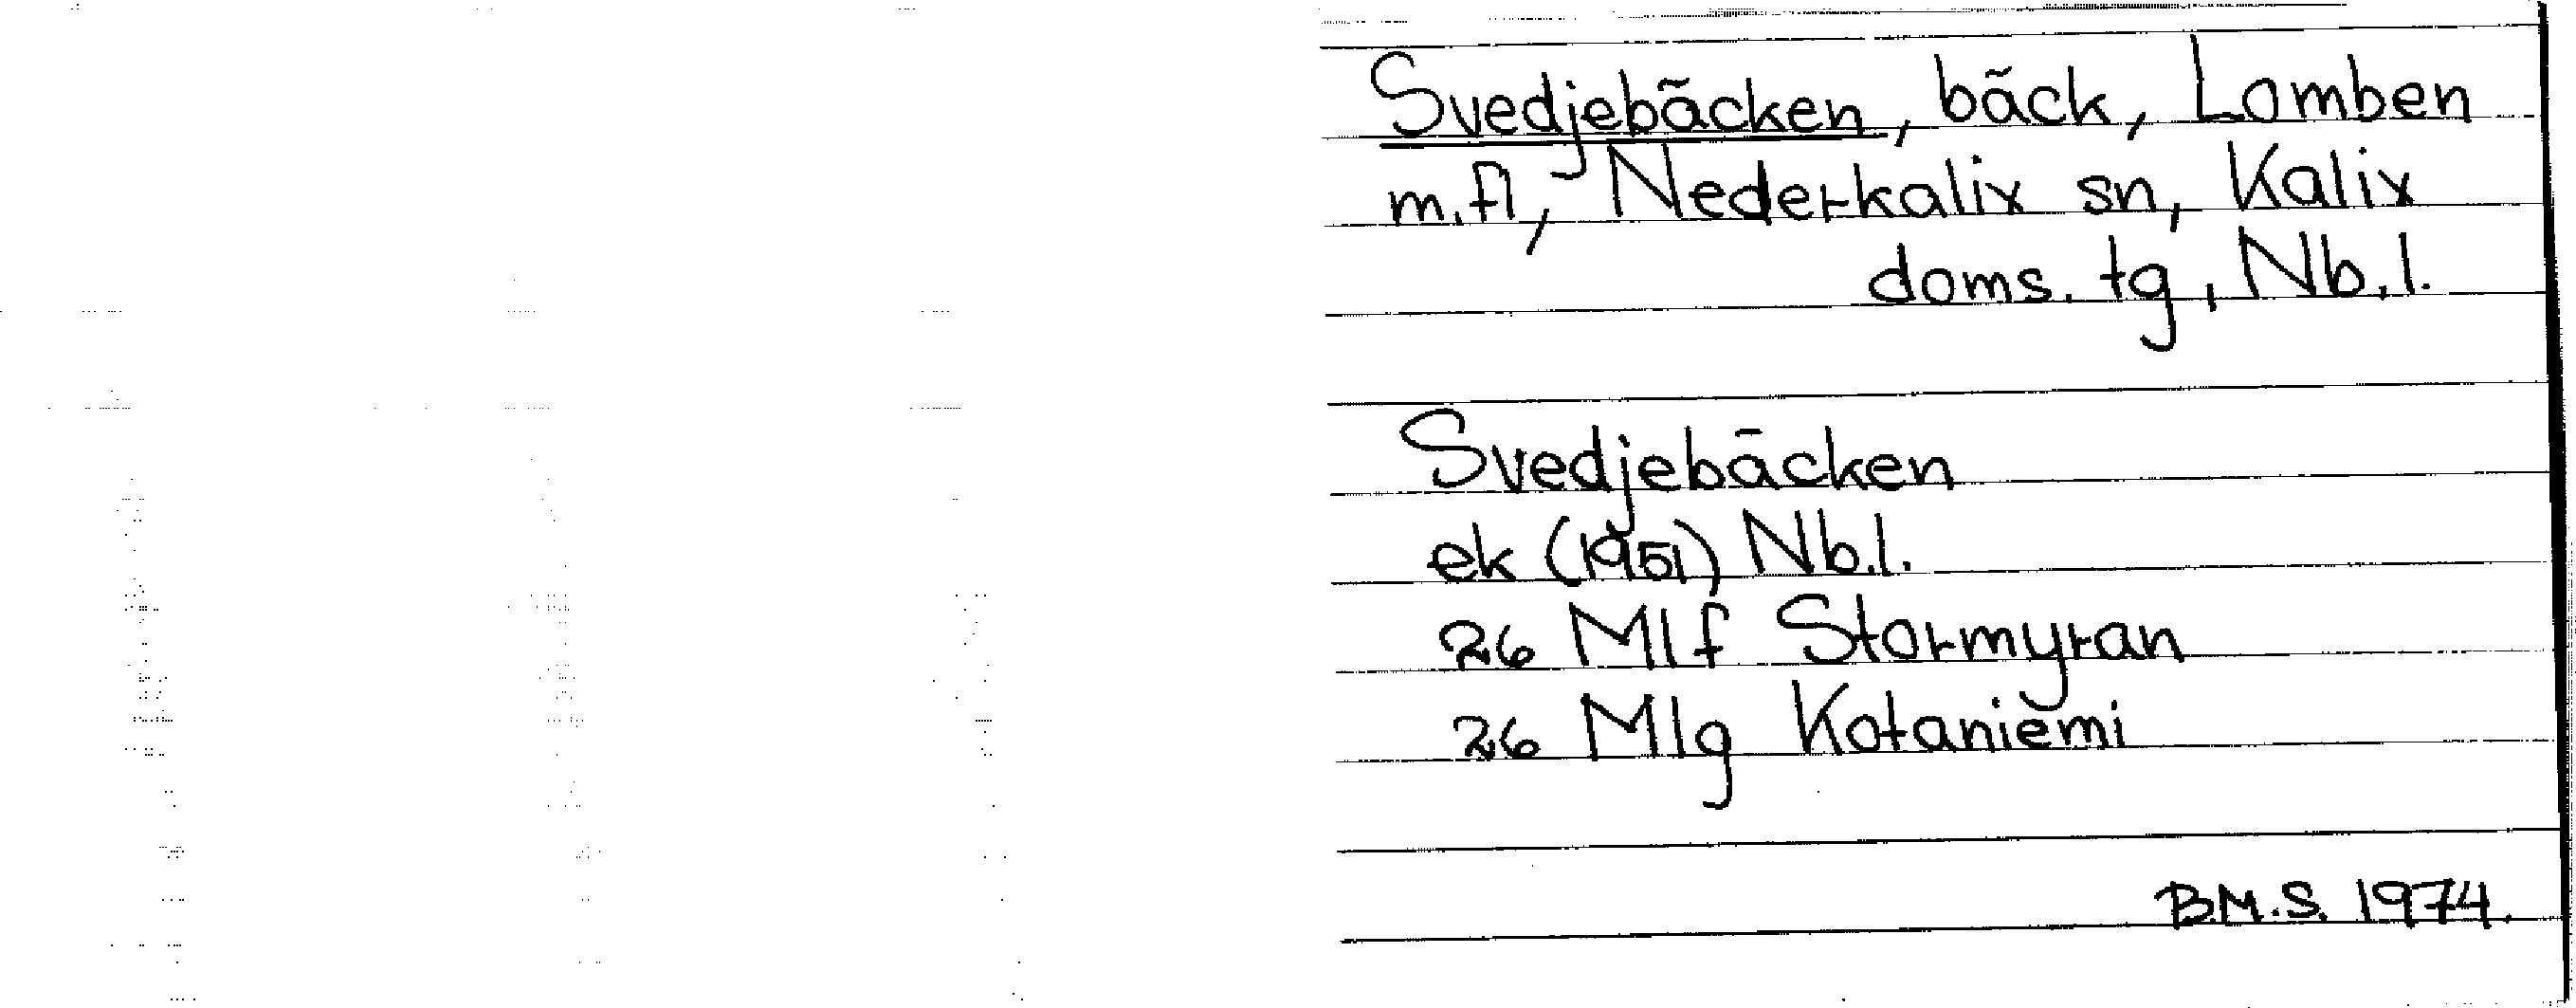 Svedjebäcken, bäck, Lomben
m.fl, Nederkalix sn, Kalix
doms. tg, Nb.l.
Svedjebäcken
ek (1951) Nb.l.
26 Mlf Stormyran
26 Mlg Kotaniemi
B.M.S. 1974.